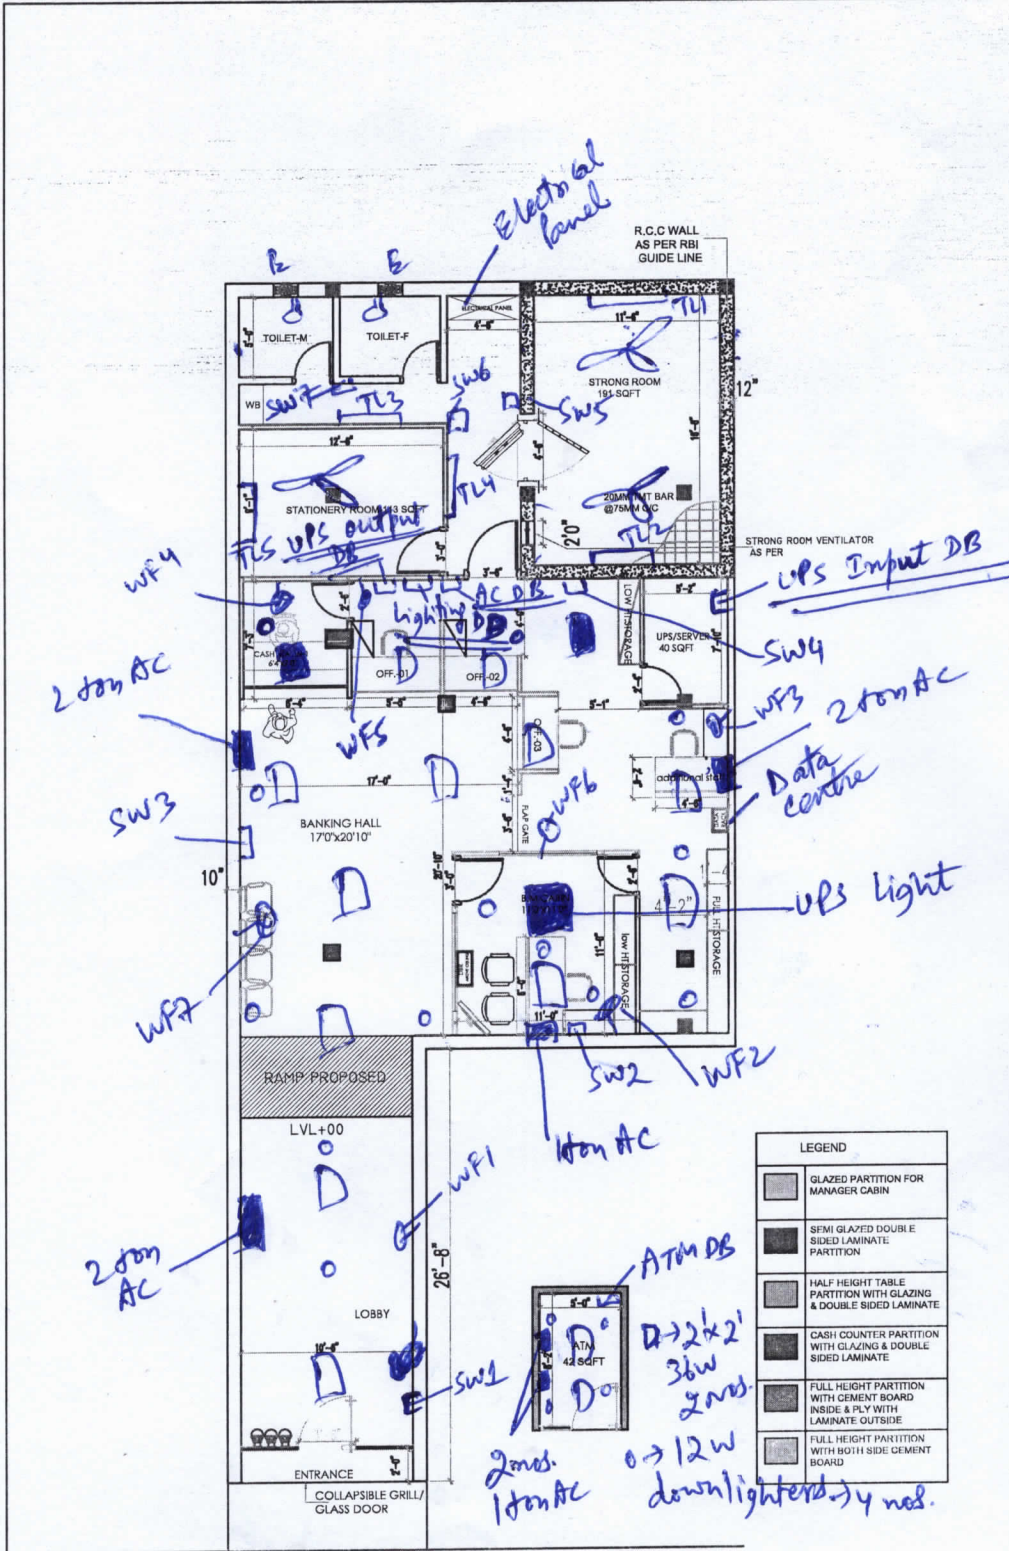 Electrical
Panel
R.C.C WALL
AS PER RBI
GUIDE LINE
E
E
ELECTRICAL PANEL
4'-6"
11'-6"
TL1
5'-0"
TOILET-M
TOILET-F
STRONG ROOM
191 SQFT
12"
WB
SW7
TL3
SW6
SW5
12'-6"
16'-6"
4'-6"
TL4
STATIONERY ROOM
9'-1"
20MM TMT BAR
@75MM C/C
2'0"
TL2
STRONG ROOM VENTILATOR
AS PER
TL5
UPS output
DB
3'-0"
3'-6"
WF4
AC DB
Lighting DB
UPS Input DB
5'-2"
LOW HT STORAGE
UPS/SERVER
40 SQFT
7'-10"
7'-3"
2'-6"
OFF.-01
OFF.-02
SW4
2 ton AC
5'-4"
5'-0"
4'-6"
5'-1"
WF5
WF3
2 ton AC
OFF.-03
17'-0"
additional staff
Data
centre
SW3
BANKING HALL
17'0"x20'10"
FLAP GATE
3'-6"
WF6
10"
20'-10"
3'-0"
UPS Light
4'-2"
FULL HT STORAGE
11'-0"
low HT STORAGE
5'-0"
11'-0"
WF7
SW2
WF2
RAMP PROPOSED
LVL+00
1ton AC
WF1
2 ton
AC
26'-8"
LOBBY
10'-6"
SW1
ATM DB
5'-0"
ATM
42 SQFT
8'-2"
D→2'x2'
36W
2 nos.
2 nos.
1ton AC
o→12W
downlighters→4 nos.
ENTRANCE
2'-0"
COLLAPSIBLE GRILL/
GLASS DOOR
LEGEND
GLAZED PARTITION FOR
MANAGER CABIN
SEMI GLAZED DOUBLE
SIDED LAMINATE
PARTITION
HALF HEIGHT TABLE
PARTITION WITH GLAZING
& DOUBLE SIDED LAMINATE
CASH COUNTER PARTITION
WITH GLAZING & DOUBLE
SIDED LAMINATE
FULL HEIGHT PARTITION
WITH CEMENT BOARD
INSIDE & PLY WITH
LAMINATE OUTSIDE
FULL HEIGHT PARTITION
WITH BOTH SIDE CEMENT
BOARD